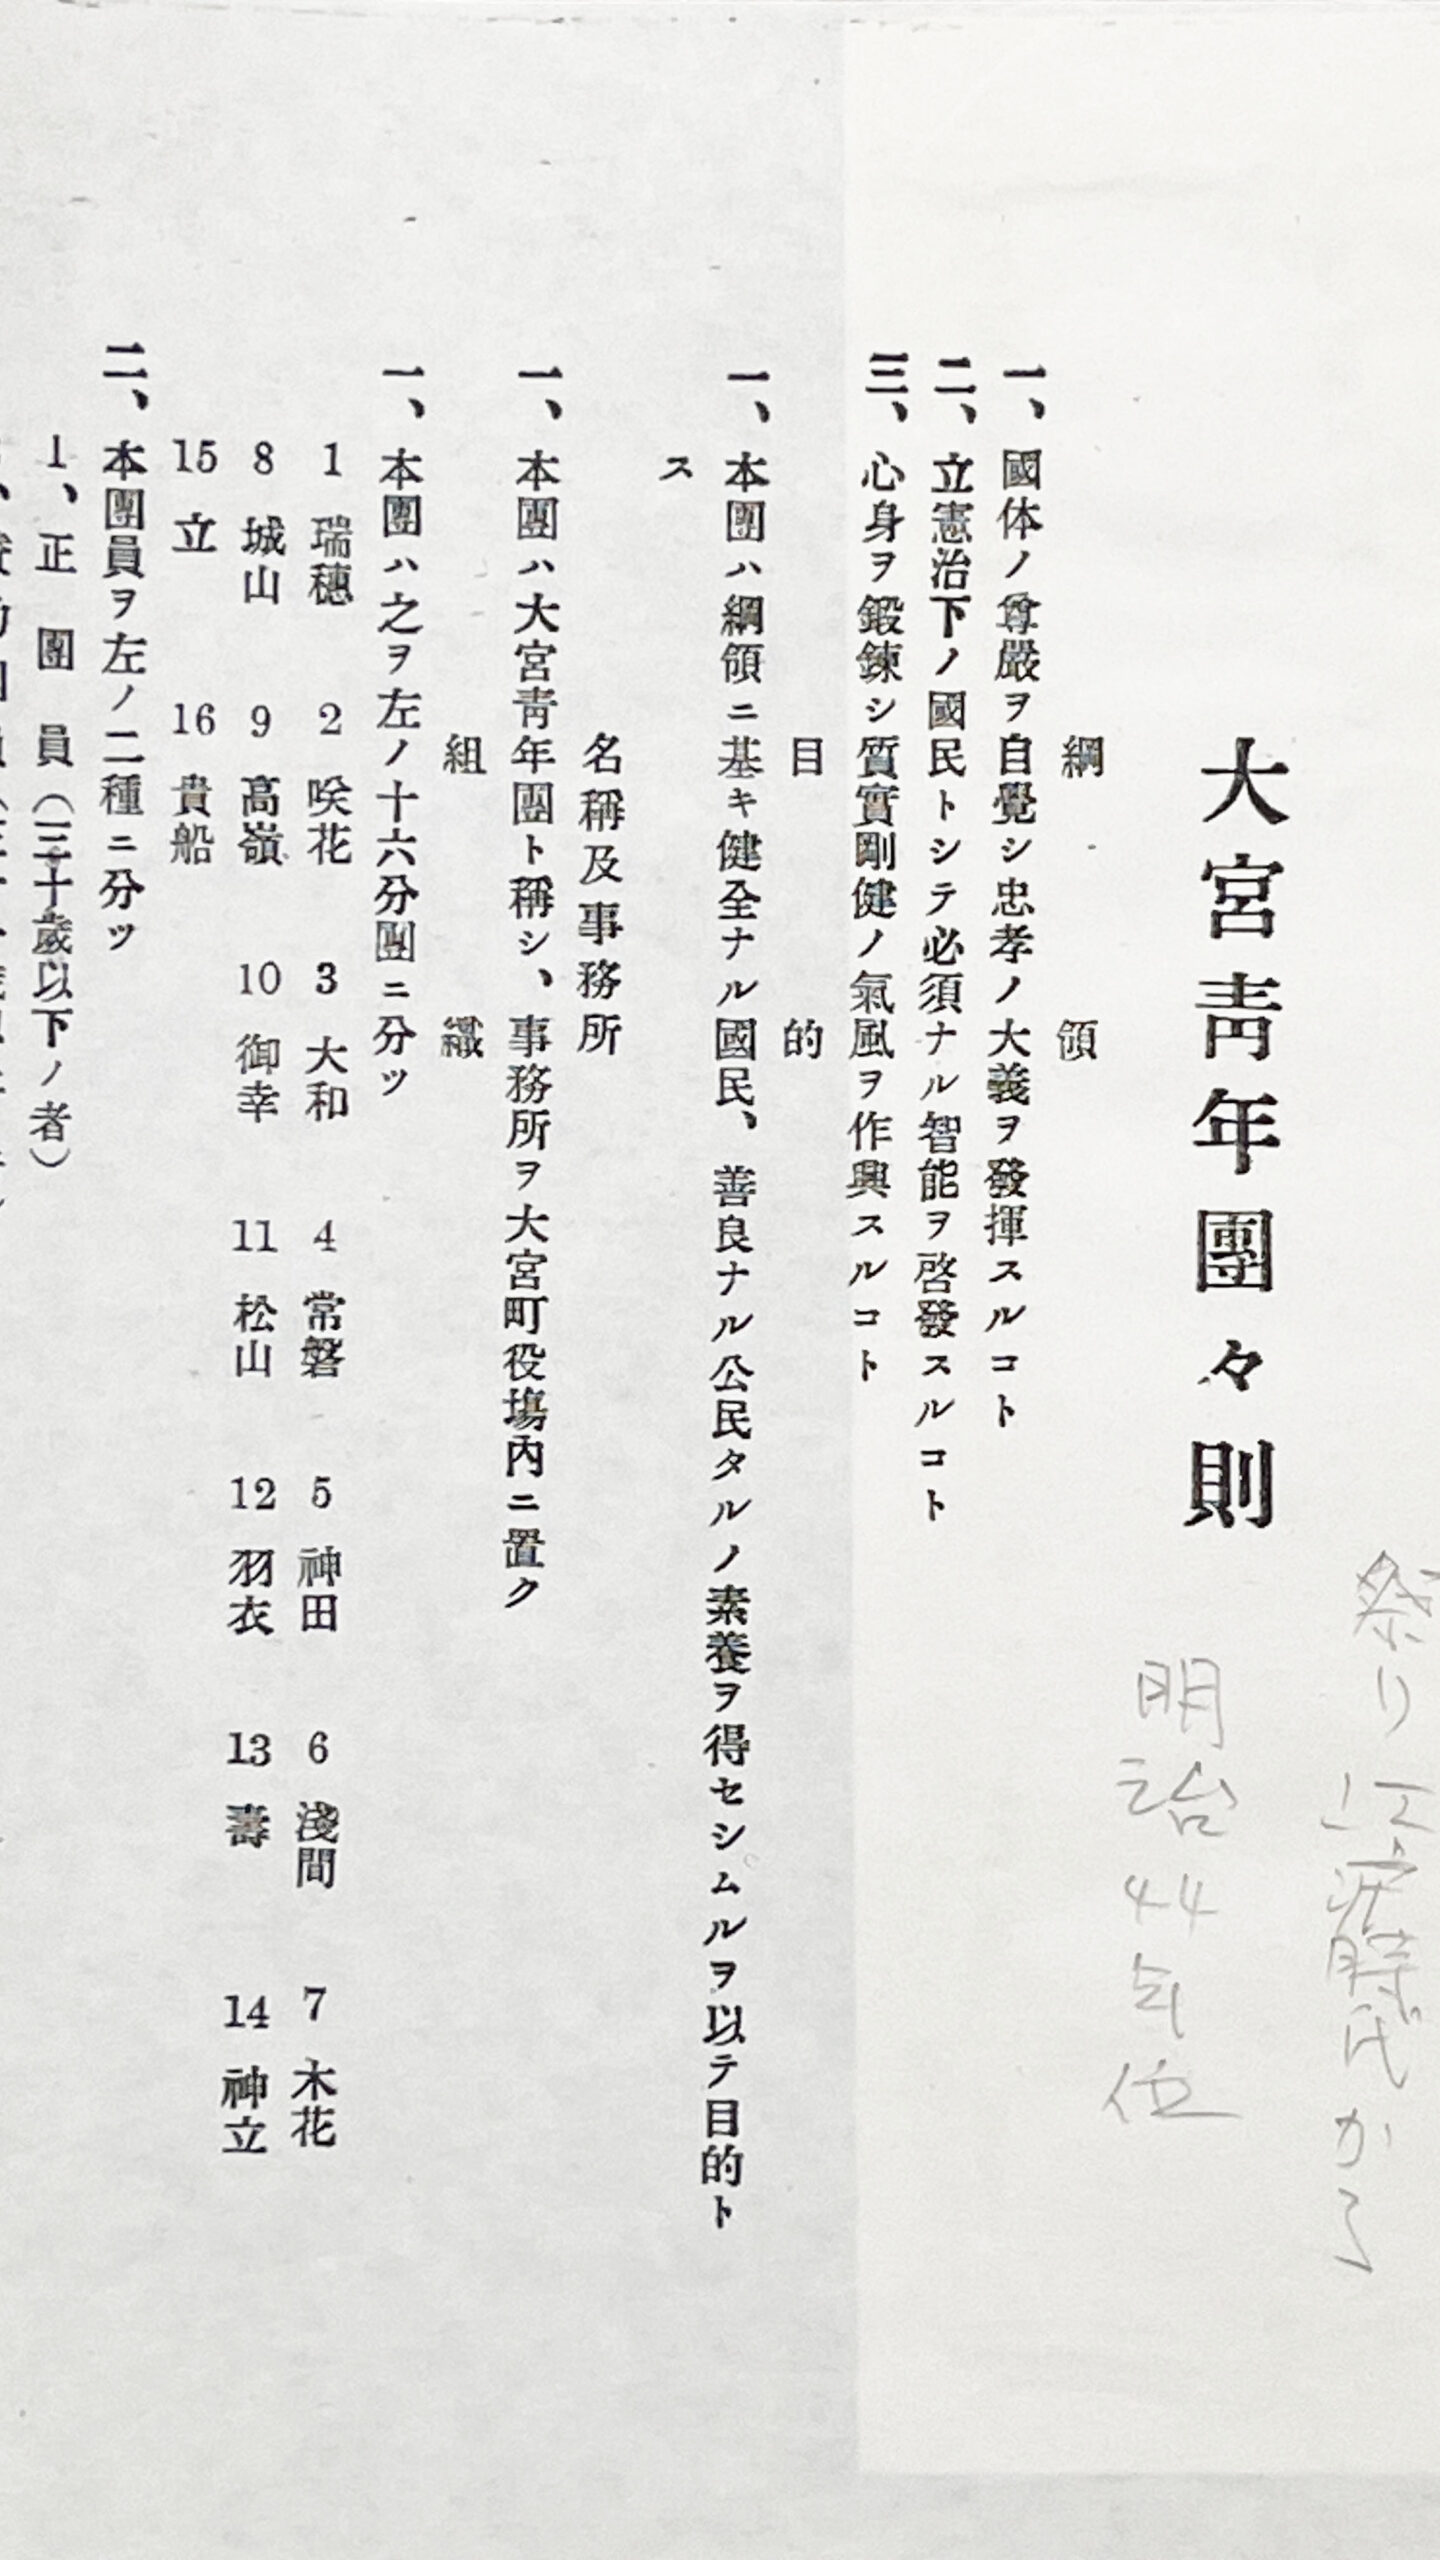 祭り江戸時代から
明治44年位
大宮靑年團々則
綱領
一、國体ノ尊嚴ヲ自覺シ忠孝ノ大義ヲ發揮スルコト
二、立憲治下ノ國民トシテ必須ナル智能ヲ啓發スルコト
三、心身ヲ鍛錬シ質實剛健ノ氣風ヲ作興スルコト
目的
一、本團ハ綱領ニ基キ健全ナル國民、善良ナル公民タルノ素養ヲ得セシムルヲ以テ目的ト
ス
名稱及事務所
一、本團ハ大宮靑年團ト稱シ、事務所ヲ大宮町役塲內ニ置ク
組織
一、本團ハ之ヲ左ノ十六分團ニ分ツ
1 瑞穗 2 咲花 3 大和 4 常磐 5 神田 6 淺間 7 木花
8 城山 9 高嶺 10 御幸 11 松山 12 羽衣 13 壽 14 神立
15 立 16 貴船
二、本團員ヲ左ノ二種ニ分ツ
1、正團員（三十歲以下ノ者）